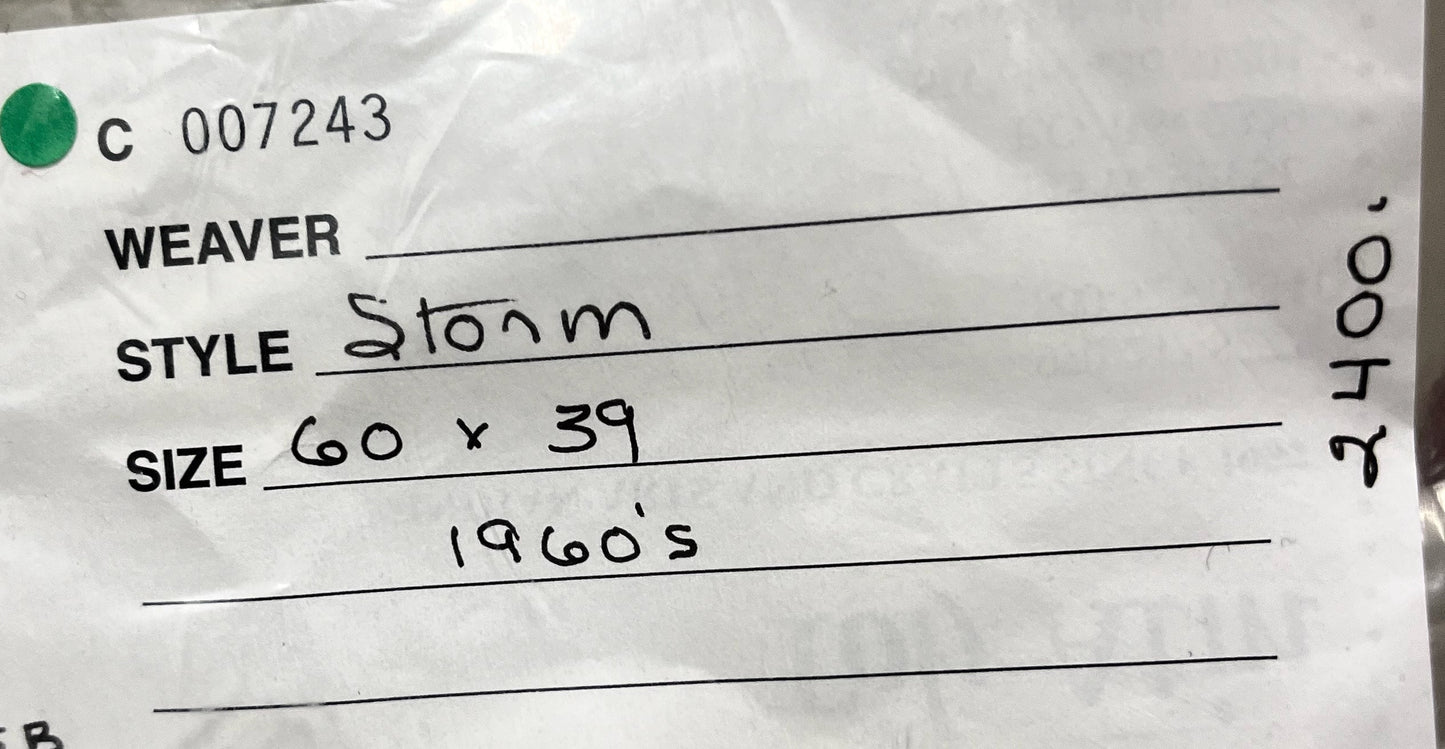 C 007243
WEAVER
STYLE Storm
SIZE 60 x 39
1960's
2400.